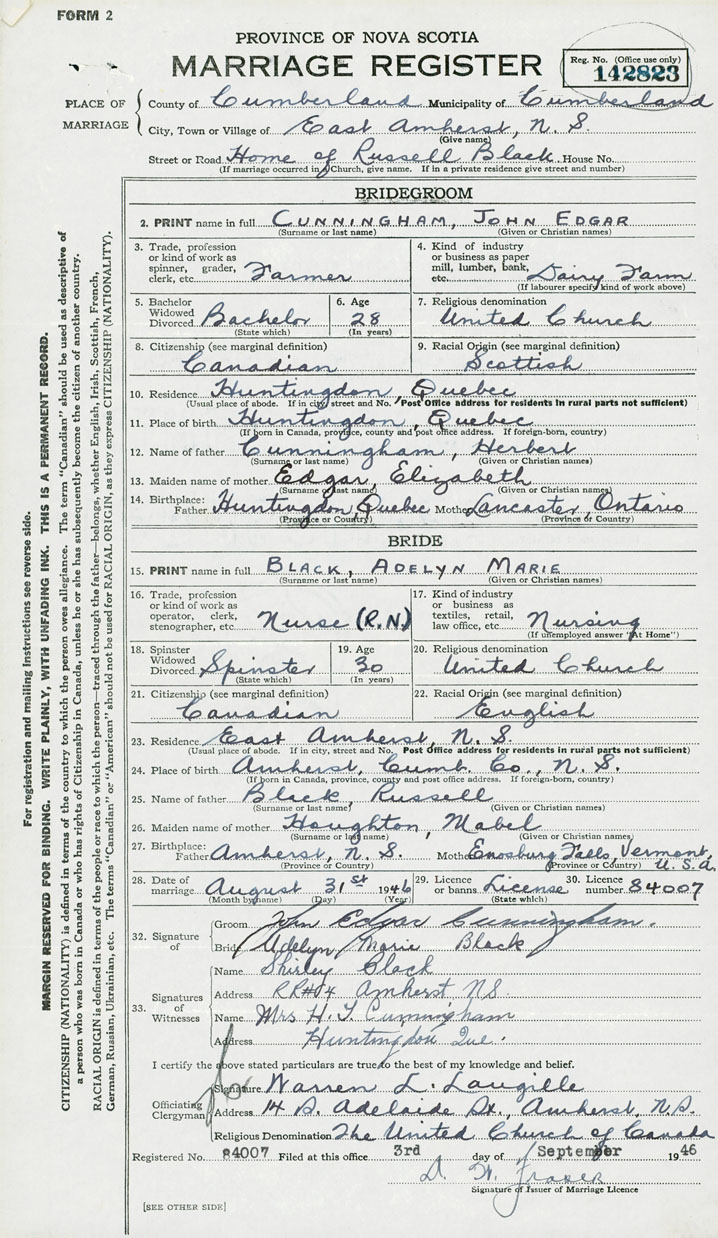 FORM 2
PROVINCE OF NOVA SCOTIA
MARRIAGE REGISTER
Reg. No. (Office use only)
142823
PLACE OF MARRIAGE
County of Cumberland Municipality of Cumberland
City, Town or Village of East Amherst, N. S.
(Give name)
Street or Road Home of Russell Black House No.
(If marriage occurred in Church, give name. If in a private residence give street and number)
BRIDEGROOM
2. PRINT name in full CUNNINGHAM, JOHN EDGAR
(Surname or last name) (Given or Christian names)
3. Trade, profession or kind of work as spinner, grader, clerk, etc. Farmer
4. Kind of industry or business as paper mill, lumber, bank, etc. Dairy Farm
(If labourer specify kind of work above)
5. Bachelor Widowed Divorced Bachelor (State which)
6. Age 28 (In years)
7. Religious denomination United Church
8. Citizenship (see marginal definition) Canadian
9. Racial Origin (see marginal definition) Scottish
10. Residence Huntingdon, Quebec
(Usual place of abode. If in city, street and No. Post Office address for residents in rural parts not sufficient)
11. Place of birth Huntingdon, Quebec
(If born in Canada, province, county and post office address. If foreign-born, country)
12. Name of father Cunningham, Herbert
(Surname or last name) (Given or Christian names)
13. Maiden name of mother Edgar, Elizabeth
(Surname or last name) (Given or Christian names)
14. Birthplace: Father Huntingdon, Quebec Mother Lancaster, Ontario
(Province or Country) (Province or Country)
BRIDE
15. PRINT name in full BLACK, ADELYN MARIE
(Surname or last name) (Given or Christian names)
16. Trade, profession or kind of work as operator, clerk, stenographer, etc. Nurse (R.N.)
17. Kind of industry or business as textiles, retail, law office, etc. Nursing
(If unemployed answer "At Home")
18. Spinster Widowed Divorced Spinster (State which)
19. Age 30 (In years)
20. Religious denomination United Church
21. Citizenship (see marginal definition) Canadian
22. Racial Origin (see marginal definition) English
23. Residence East Amherst, N. S.
(Usual place of abode. If in city, street and No. Post Office address for residents in rural parts not sufficient)
24. Place of birth Amherst, Cumb. Co., N. S.
(If born in Canada, province, county and post office address. If foreign-born, country)
25. Name of father Black, Russell
(Surname or last name) (Given or Christian names)
26. Maiden name of mother Houghton, Mabel
(Surname or last name) (Given or Christian names)
27. Birthplace: Father Amherst, N. S. Mother Enosburg Falls, Vermont, U. S. A.
(Province or Country) (Province or Country)
28. Date of marriage August 31st 1946
(Month by name) (Day) (Year)
29. Licence or banns License (State which)
30. Licence number 84007
32. Signature of
Groom John Edgar Cunningham.
Bride Adelyn Marie Black
33. Signatures of Witnesses
Name Shirley Black
Address RR#04 Amherst NS
Name Mrs H. T Cunningham
Address Huntingdon Que.
I certify the above stated particulars are true to the best of my knowledge and belief.
Officiating Clergyman
Signature Warren L.
Address 14 B. Adelaide St., Amherst, N.S.
Religious Denomination The United Church of Canada
Registered No. 84007 Filed at this office 3rd day of September 1946
D. W. Fraser
Signature of Issuer of Marriage Licence
[SEE OTHER SIDE]
For registration and mailing instructions see reverse side.
MARGIN RESERVED FOR BINDING. WRITE PLAINLY, WITH UNFADING INK. THIS IS A PERMANENT RECORD.
CITIZENSHIP (NATIONALITY) is defined in terms of the country to which the person owes allegiance. The term "Canadian" should be used as descriptive of
a person who was born in Canada or who has rights of Citizenship in Canada, unless he or she has subsequently become the citizen of another country.
RACIAL ORIGIN is defined in terms of the people or race to which the person—traced through the father—belongs, whether English, Irish, Scottish, French,
German, Russian, Ukrainian, etc. The terms "Canadian" or "American" should not be used for RACIAL ORIGIN, as they express CITIZENSHIP (NATIONALITY).